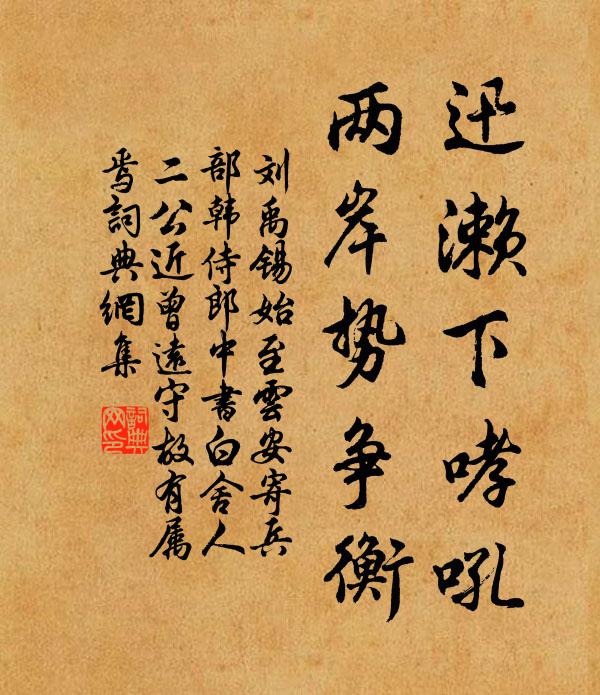 迅濑下哮吼
两岸势争衡
刘禹锡始至雲安寄兵
部韩侍郎中書白舍人
二公近曾遠守故有属
焉詞典網集
詞典网印